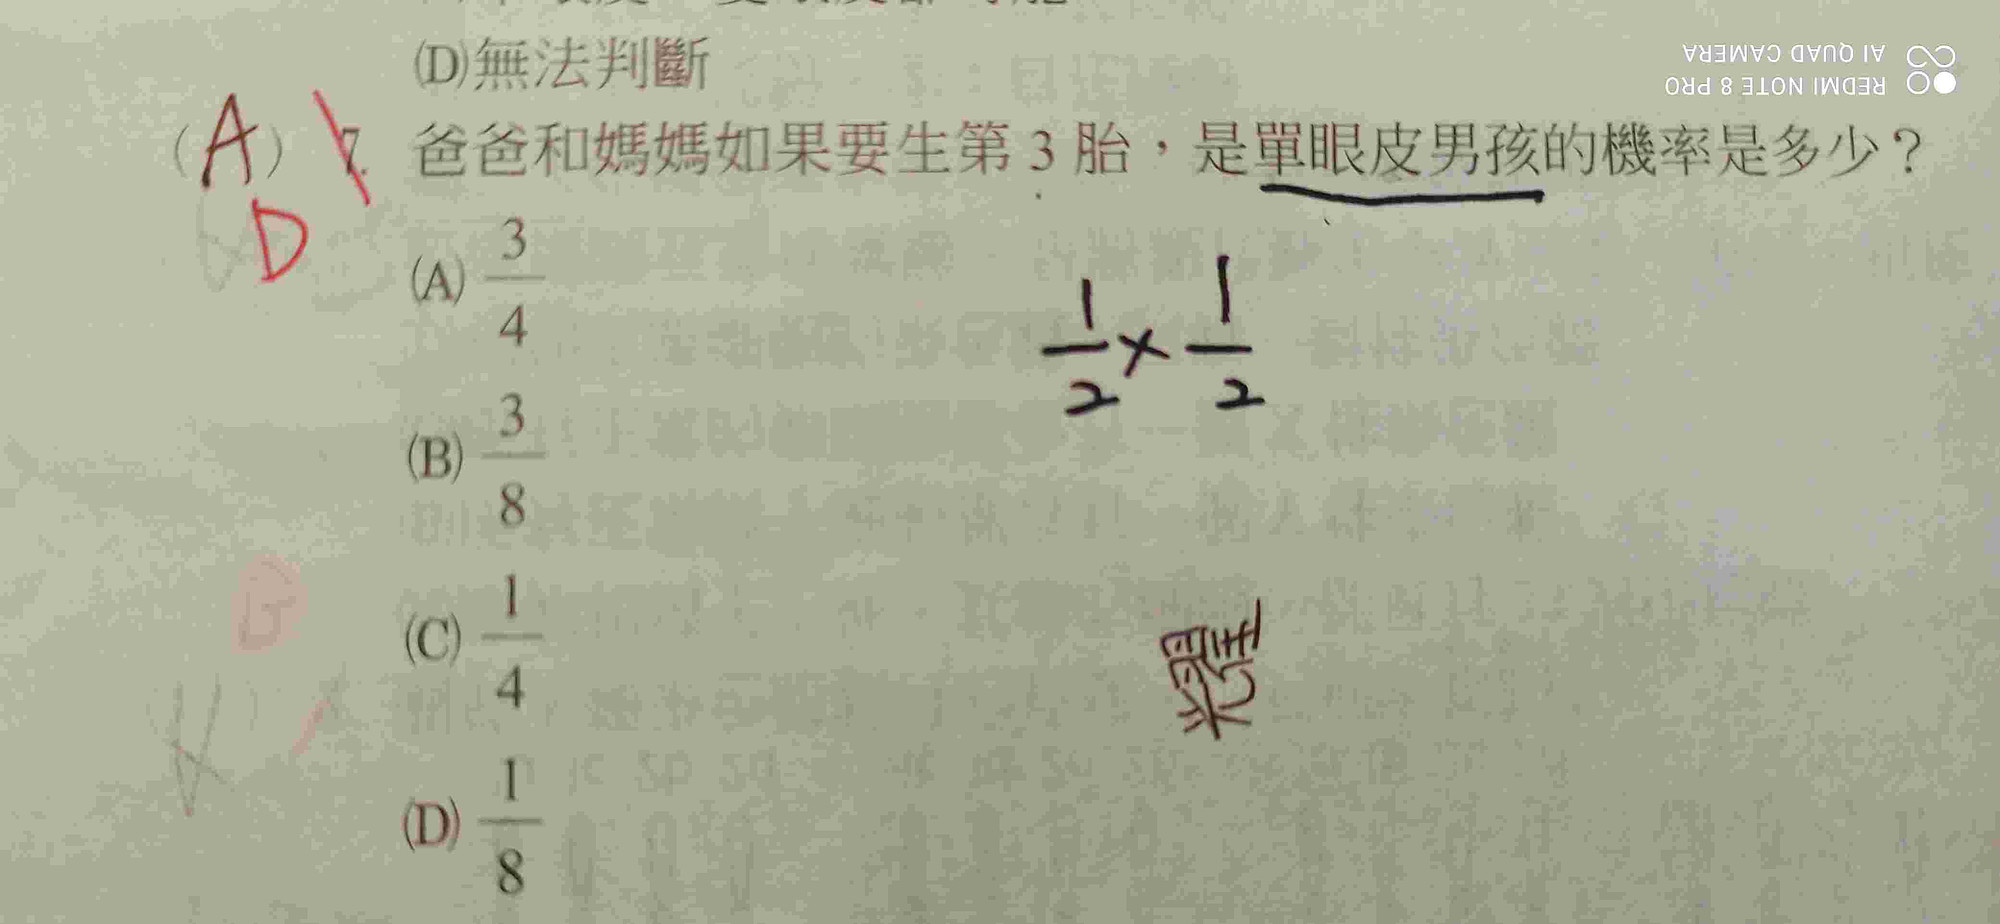 (D)無法判斷
(A) 7. 爸爸和媽媽如果要生第3胎，是單眼皮男孩的機率是多少？
D
(A) 3/4
(B) 3/8
(C) 1/4
(D) 1/8
1/2 × 1/2
REDMI NOTE 8 PRO
AI QUAD CAMERA